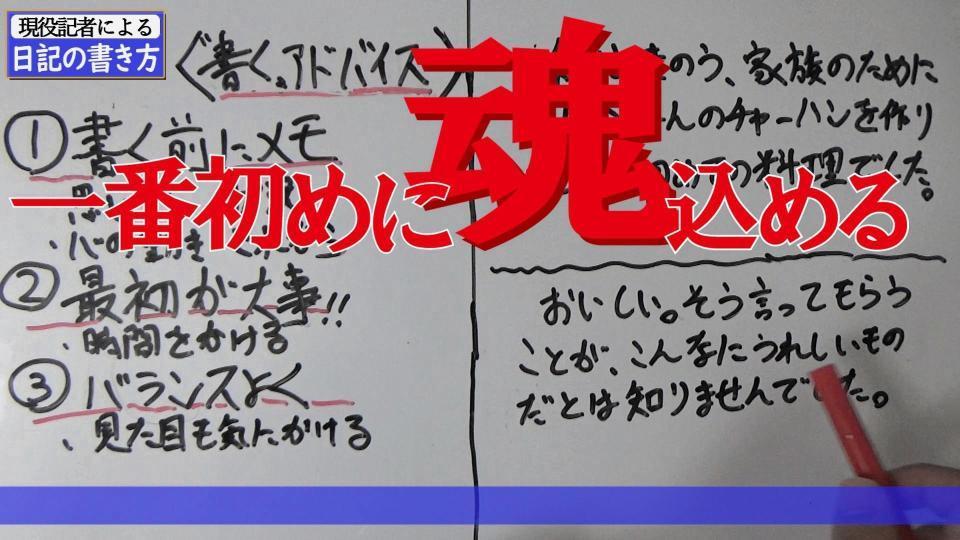 現役記者による
日記の書き方
〈書くアドバイス〉
① 書く前にメモ
一番初めに魂込める
② 最初が大事!!
・時間をかける
③ バランスよく
・見た目も気にかける
のう、家族のために
んのチャーハンを作り
の料理でした。
おいしい。そう言ってもらう
ことが、こんなにうれしいもの
だとは知りませんでした。